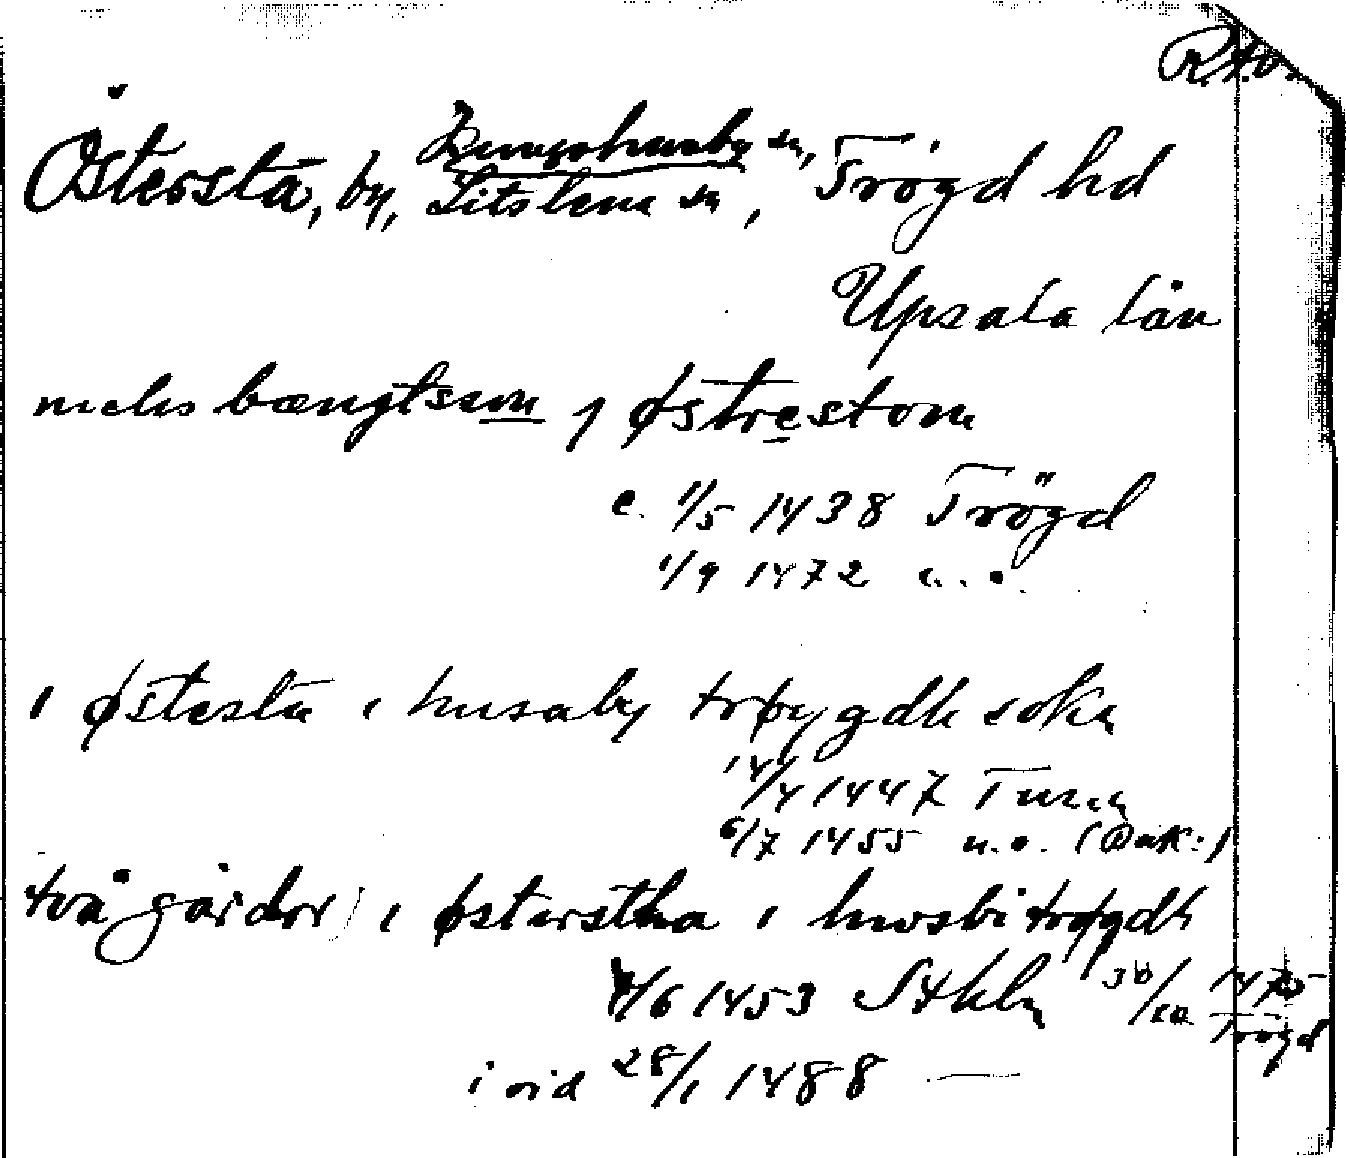 R.A.O.
Österstå, by, Kungshusby sn, Litslena sn, Trögd hd
Upsala län
niclis bængtsson j østrestom
c. 1/5 1438 Trögd
1/9 1472 u. o.
i østestå i husaby trøygdh sokn
14/4 1447 Tuna
6/7 1455 u.o. (Dat:)
två gårdor) i østerstha i husbi trøgdh
4/6 1453 Sthlm 30/10 1475 Trögd
i vid 28/1 1488 —